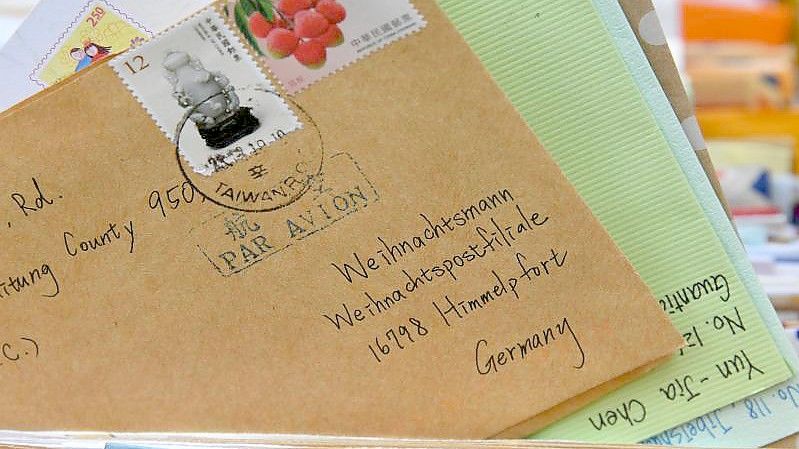 2.50
12
中華民國郵票
中華民國郵票
TAIWAN R.O.C
航空
PAR AVION
Rd.
itung County 950
C.)
Weihnachtsmann
Weihnachtspostfiliale
16798 Himmelpfort
Germany
Yun-Jia Chen
No.
No. 118,